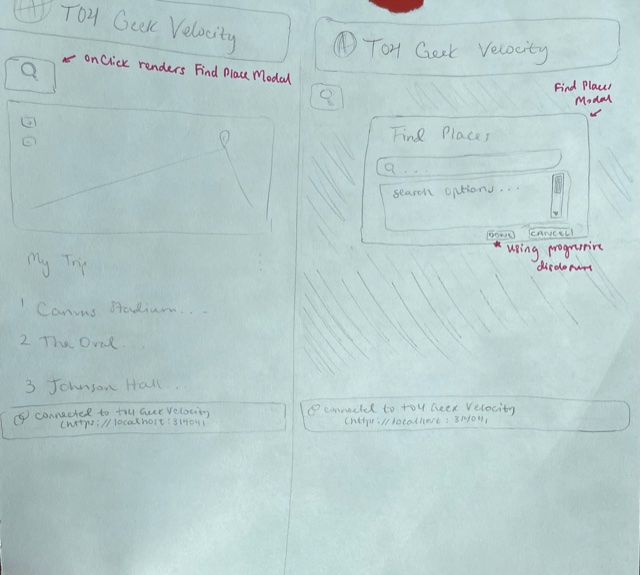 T04 Geek Velocity
onClick renders Find Place Modal
My Trip
1 Canvas Stadium...
2 The Oval...
3 Johnson Hall..
connected to T04 Geek Velocity
(https://localhost:31404)
T04 Geek Velocity
Find Places
Modal
Find Places
search options...
DONE CANCEL
* using progressive
disclosure
connected to T04 Geek Velocity
(https://localhost: 31404)